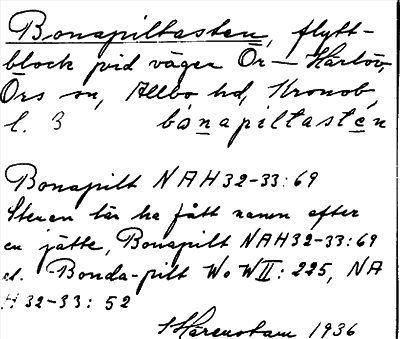 Bonapiltasten, flytt-
block vid vägen Ör — Härlöv,
Örs sn, Allbo hd, Kronob.
l. 3 bónapiltastén
Bonapilt NAH 32-33: 69
Stenen lär ha fått namn efter
en jätte, Bonapilt NAH 32-33: 69
el. Bonda-pilt WoW II: 225, NA
H 32-33: 52
1936